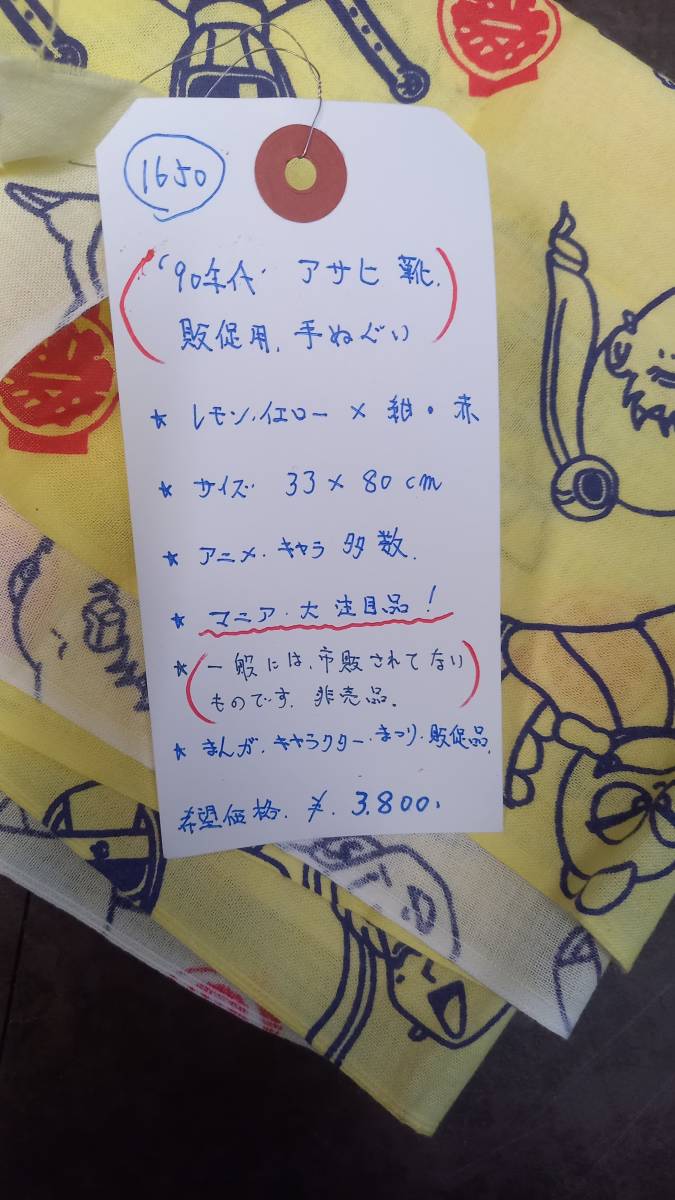 1650
'90年代 アサヒ靴.
販促用.手ぬぐい
★ レモン.イエロー × 紺・赤
★ サイズ 33×80cm
★ アニメ.キャラ 多数.
★ マニア.大注目品!
★ 一般には.市販されてない
ものです.非売品.
★ まんが.キャラクター.まつり.販促品.
希望価格.¥.3.800.